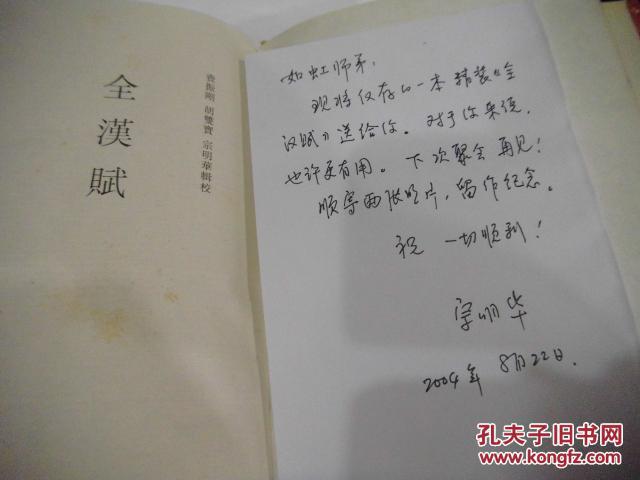 全漢賦
費振剛 胡雙寶 宗明華輯校
如虹师弟,
现将仅存的一本精装《全
汉赋》送给你。对于你来说,
也许更有用。下次聚会再见!
顺寄两张照片,留作纪念。
祝 一切顺利!
宗明华
2004年8月22日.
孔夫子旧书网
www.kongfz.com